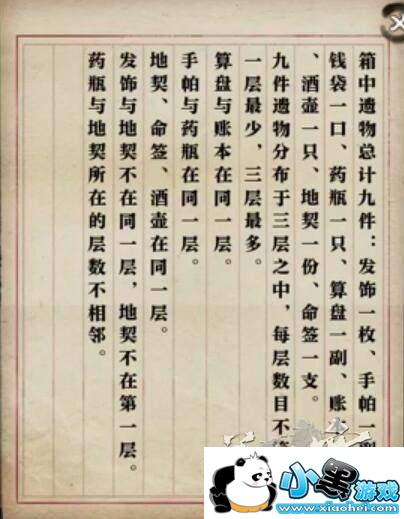 箱中遗物总计九件：发饰一枚、手帕一副
钱袋一口、药瓶一只、算盘一副、账本
、酒壶一只、地契一份、命签一支。
九件遗物分布于三层之中，每层数目不
一层最少，三层最多。
算盘与账本在同一层。
手帕与药瓶在同一层。
地契、命签、酒壶在同一层。
发饰与地契不在同一层，地契不在第一层。
药瓶与地契所在的层数不相邻。
小黑游戏
www.xiaohei.com